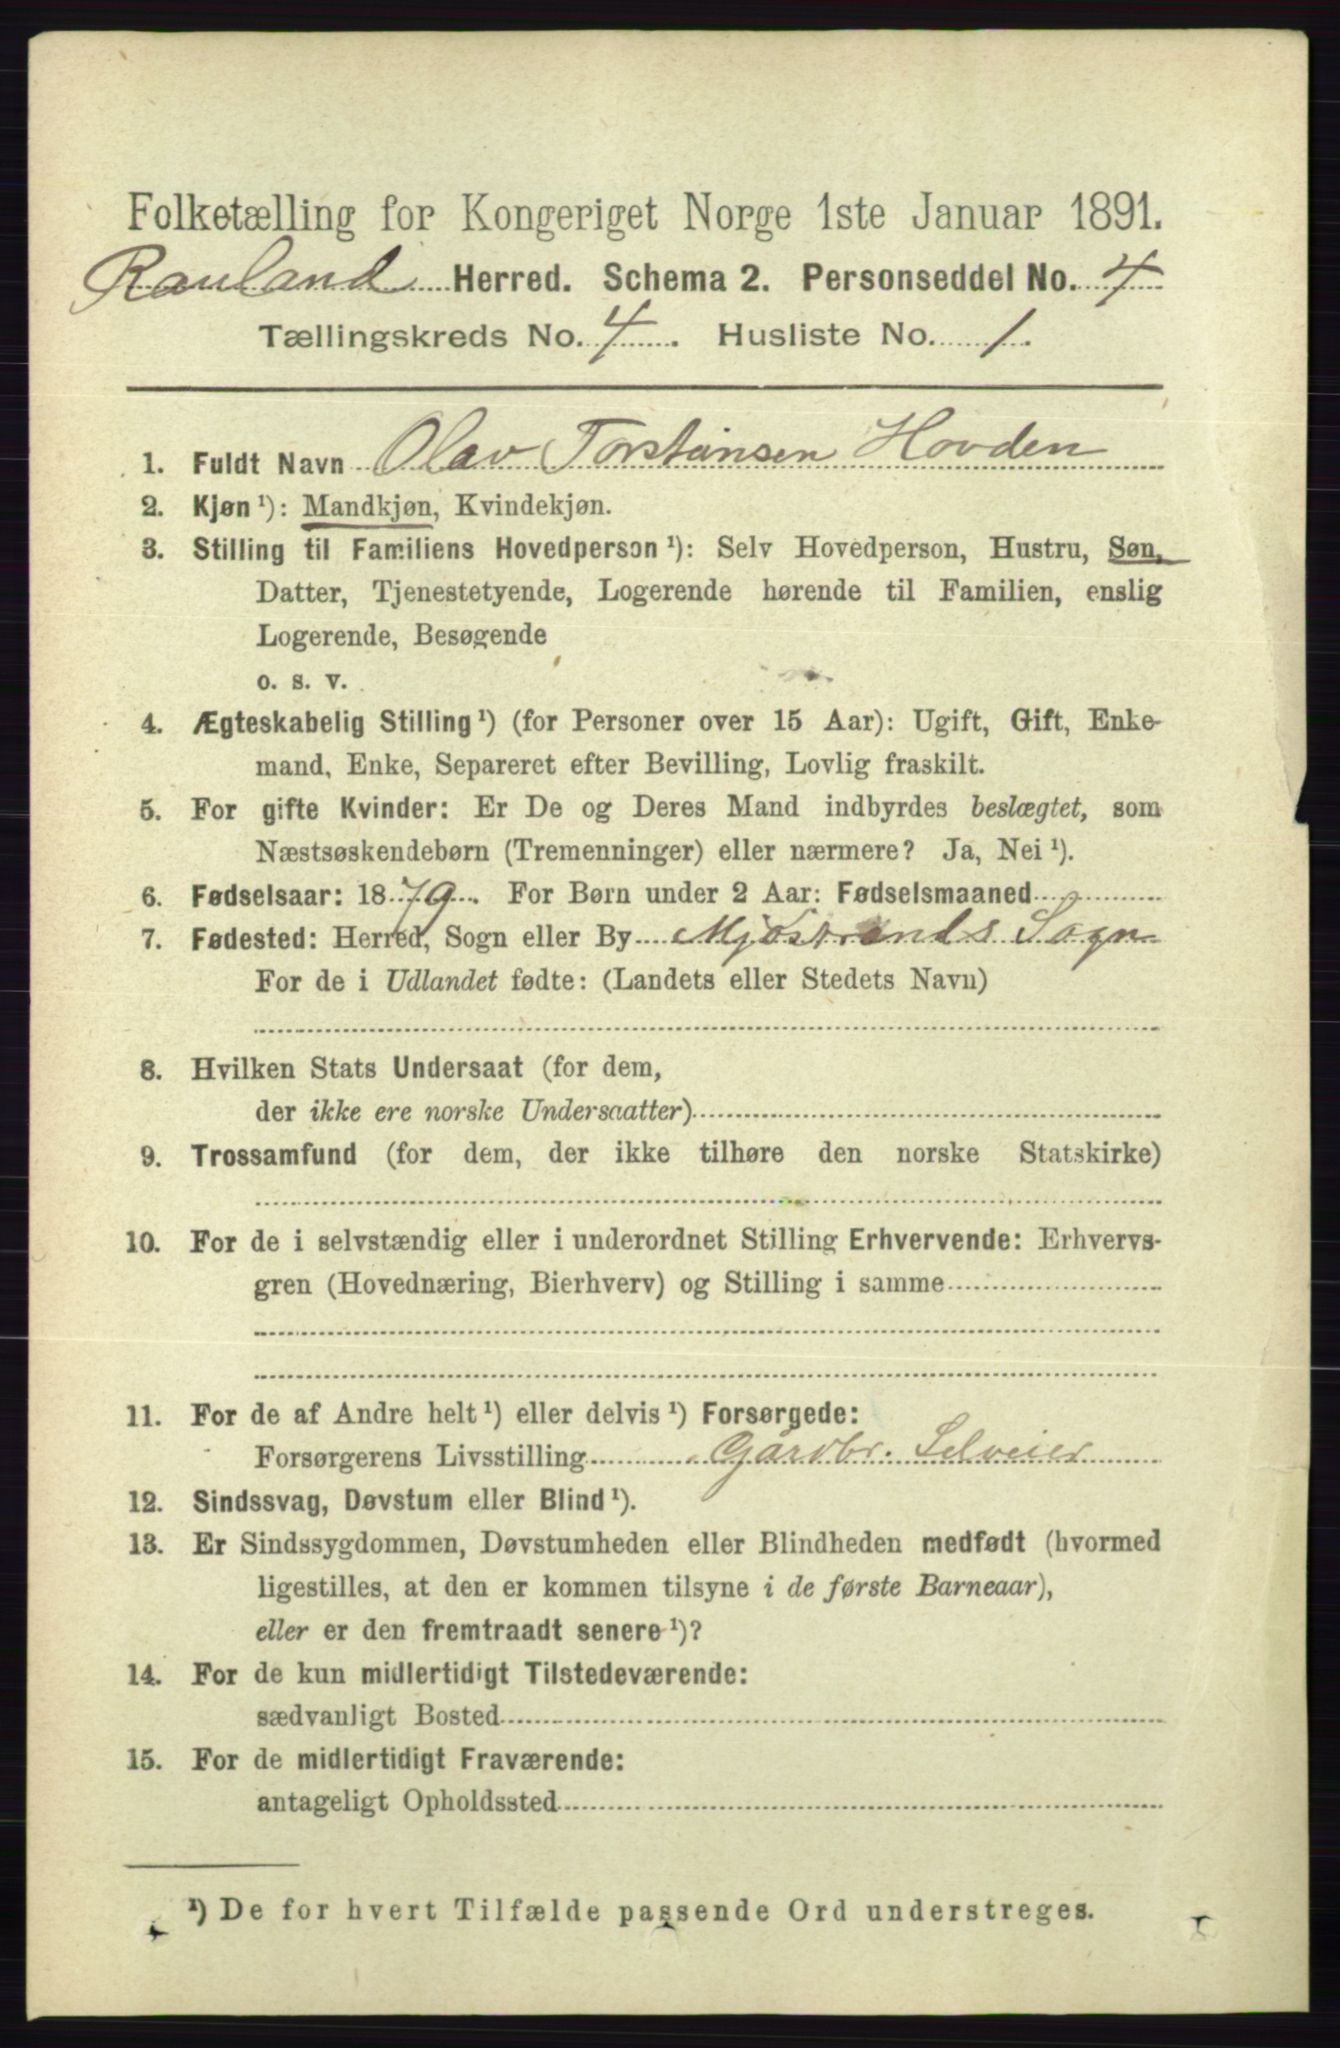 Folketælling for Kongeriget Norge 1ste Januar 1891.
Rauland Herred. Schema 2. Personseddel No. 4
Tællingskreds No. 4. Husliste No. 1.
1. Fuldt Navn Olav Torstansen Hovden
2. Kjøn ¹): Mandkjøn, Kvindekjøn.
3. Stilling til Familiens Hovedperson ¹): Selv Hovedperson, Hustru, Søn,
Datter, Tjenestetyende, Logerende hørende til Familien, enslig
Logerende, Besøgende
o. s. v.
4. Ægteskabelig Stilling ¹) (for Personer over 15 Aar): Ugift, Gift, Enke-
mand, Enke, Separeret efter Bevilling, Lovlig fraskilt.
5. For gifte Kvinder: Er De og Deres Mand indbyrdes beslægtet, som
Næstsøskendebørn (Tremenninger) eller nærmere? Ja, Nei ¹).
6. Fødselsaar: 1879. For Børn under 2 Aar: Fødselsmaaned
7. Fødested: Herred, Sogn eller By Mjøstrands Sogn
For de i Udlandet fødte: (Landets eller Stedets Navn)
8. Hvilken Stats Undersaat (for dem,
der ikke ere norske Undersaatter)
9. Trossamfund (for dem, der ikke tilhøre den norske Statskirke)
10. For de i selvstændig eller i underordnet Stilling Erhvervende: Erhvervs-
gren (Hovednæring, Bierhverv) og Stilling i samme
11. For de af Andre helt ¹) eller delvis ¹) Forsørgede:
Forsørgerens Livsstilling Gårdbr. Selveier
12. Sindssvag, Døvstum eller Blind ¹).
13. Er Sindssygdommen, Døvstumheden eller Blindheden medfødt (hvormed
ligestilles, at den er kommen tilsyne i de første Barneaar),
eller er den fremtraadt senere ¹)?
14. For de kun midlertidigt Tilstedeværende:
sædvanligt Bosted
15. For de midlertidigt Fraværende:
antageligt Opholdssted
¹) De for hvert Tilfælde passende Ord understreges.